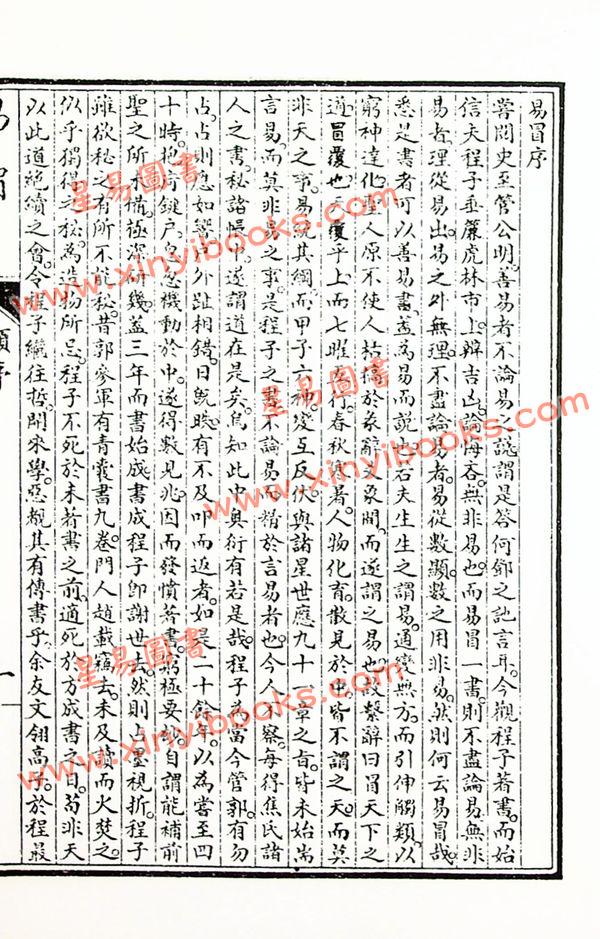 易冒序
嘗閱史至管公明善易者不論易之談謂是答何鄧之訑言耳今觀程子著書而始
信夫程子垂簾虎林市上辯吉凶論悔吝無非易也而易冒一書則不盡論易無非
易者理從易出易之外無理不盡論易者易從數顯數之用非易然則何云易冒哉
悉是書者可以善易書盡為易而說也若夫生生之謂易通變無方而引伸觸類以
窮神達化聖人原不使人枯槁於象辭爻象間而遂謂之易也故繫辭曰冒天下之
道冒覆也天覆乎上而七曜行春秋人物化育散見於中皆不謂之天而莫
非天之事易統其綱而甲子六神變互反伏與諸星世應九十一章之旨皆未始耑
言易而莫非易之事是程子之書不論易而精於言易者也今人不察每得焦氏諸
人之書秘諸帳中遂謂道在是矣烏知此中奧衍有若是哉程子為當今管郭有勿
占占則應如響戶外趾相錯日旣昳有不及叩而返者如是二十餘年以為嘗至四
十時抱疴鍵戶息慮機動於中遂得數見兆因而發憤著書窮極要眇自謂能補前
聖之所未備極深研幾蓋三年而書始成書成程子卽謝世去然則占墨視折程子
雖欲秘之有所不能秘昔郭參軍有青囊書九卷門人趙載竊去未及讀而火焚之
似乎獨得之秘為造物所忌程子不死於未著書之前適死於方成書之日茍非天
以此道絕續之會令程子繼往哲開來學惡覩其有傳書乎余友文翎高子於程最
星易圖書
www.xinyibooks.com
星易圖書
www.xinyibooks.com
星易圖書
www.xinyibooks.com